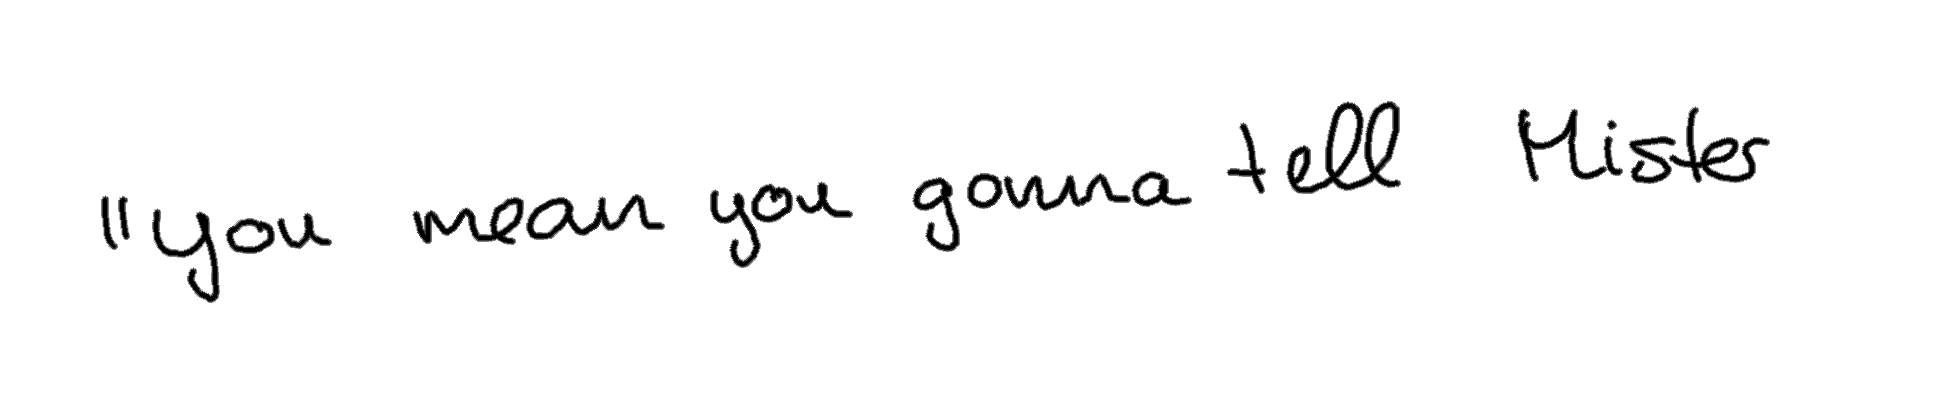 "You mean you gonna tell Mister